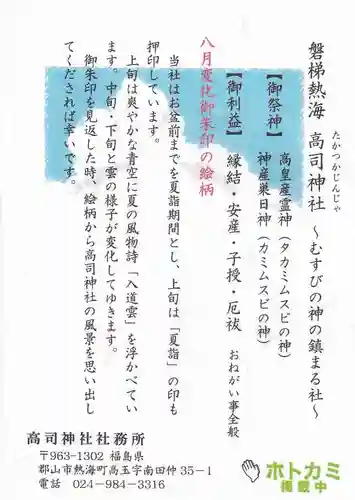 磐梯熱海 高司神社 ～むすびの神の鎮まる社～
たかつかじんじゃ
【御祭神】 高皇産霊神（タカミムスビの神）
神産巣日神（カミムスビの神）
【御利益】 縁結・安産・子授・厄祓 おねがい事全般
八月変化御朱印の絵柄
当社はお盆前までを夏詣期間とし、上旬は「夏詣」の印も
押印しています。
上旬は爽やかな青空に夏の風物詩「入道雲」を浮かべてい
ます。中旬・下旬と雲の様子が変化してゆきます。
御朱印を見返した時、絵柄から高司神社の風景を思い出し
てくだされば幸いです。
高司神社社務所
〒963-1302 福島県
郡山市熱海町高玉字南田仲35－1
電話 024-984-3316
ホトカミ
掲載中